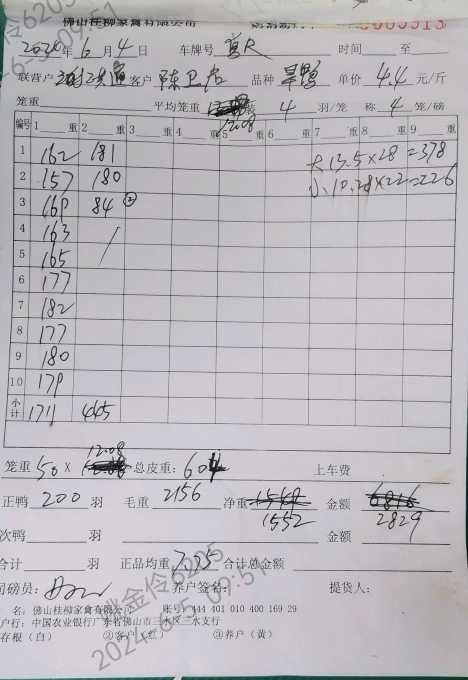 佛山桂柳家禽有限公司
2024年6月4日 车牌号 时间 至
联营户 客户 陈卫店 品种 旱鸭 单价 4.4 元/斤
笼重 平均笼重 12.08 4 羽/笼 称 4 笼/磅
编号 1 重 2 重 3 重 4 重 5 重 6 重 7 重 8 重 9 重
1 162 181 大13.5×28=378
2 157 180 小10.28×22=226
3 169 84 ②
4 163
5 165
6 177
7 182
8 177
9 180
10 179
小计 1711 445
笼重 50 × 12.08 总皮重: 604 上车费
正鸭 200 羽 毛重 2156 净重 1552 金额 2829
次鸭 羽 金额
合计 羽 正品均重 7.75 合计总金额
司磅员: 养户签名: 提货人:
名: 佛山桂柳家禽有限公司 账号: 444 401 010 400 169 29
户行: 中国农业银行广东省佛山市三水区三水支行
存根(白) ②客户(红) ③养户(黄)
姚金伶6205
2024-6-5 09:51